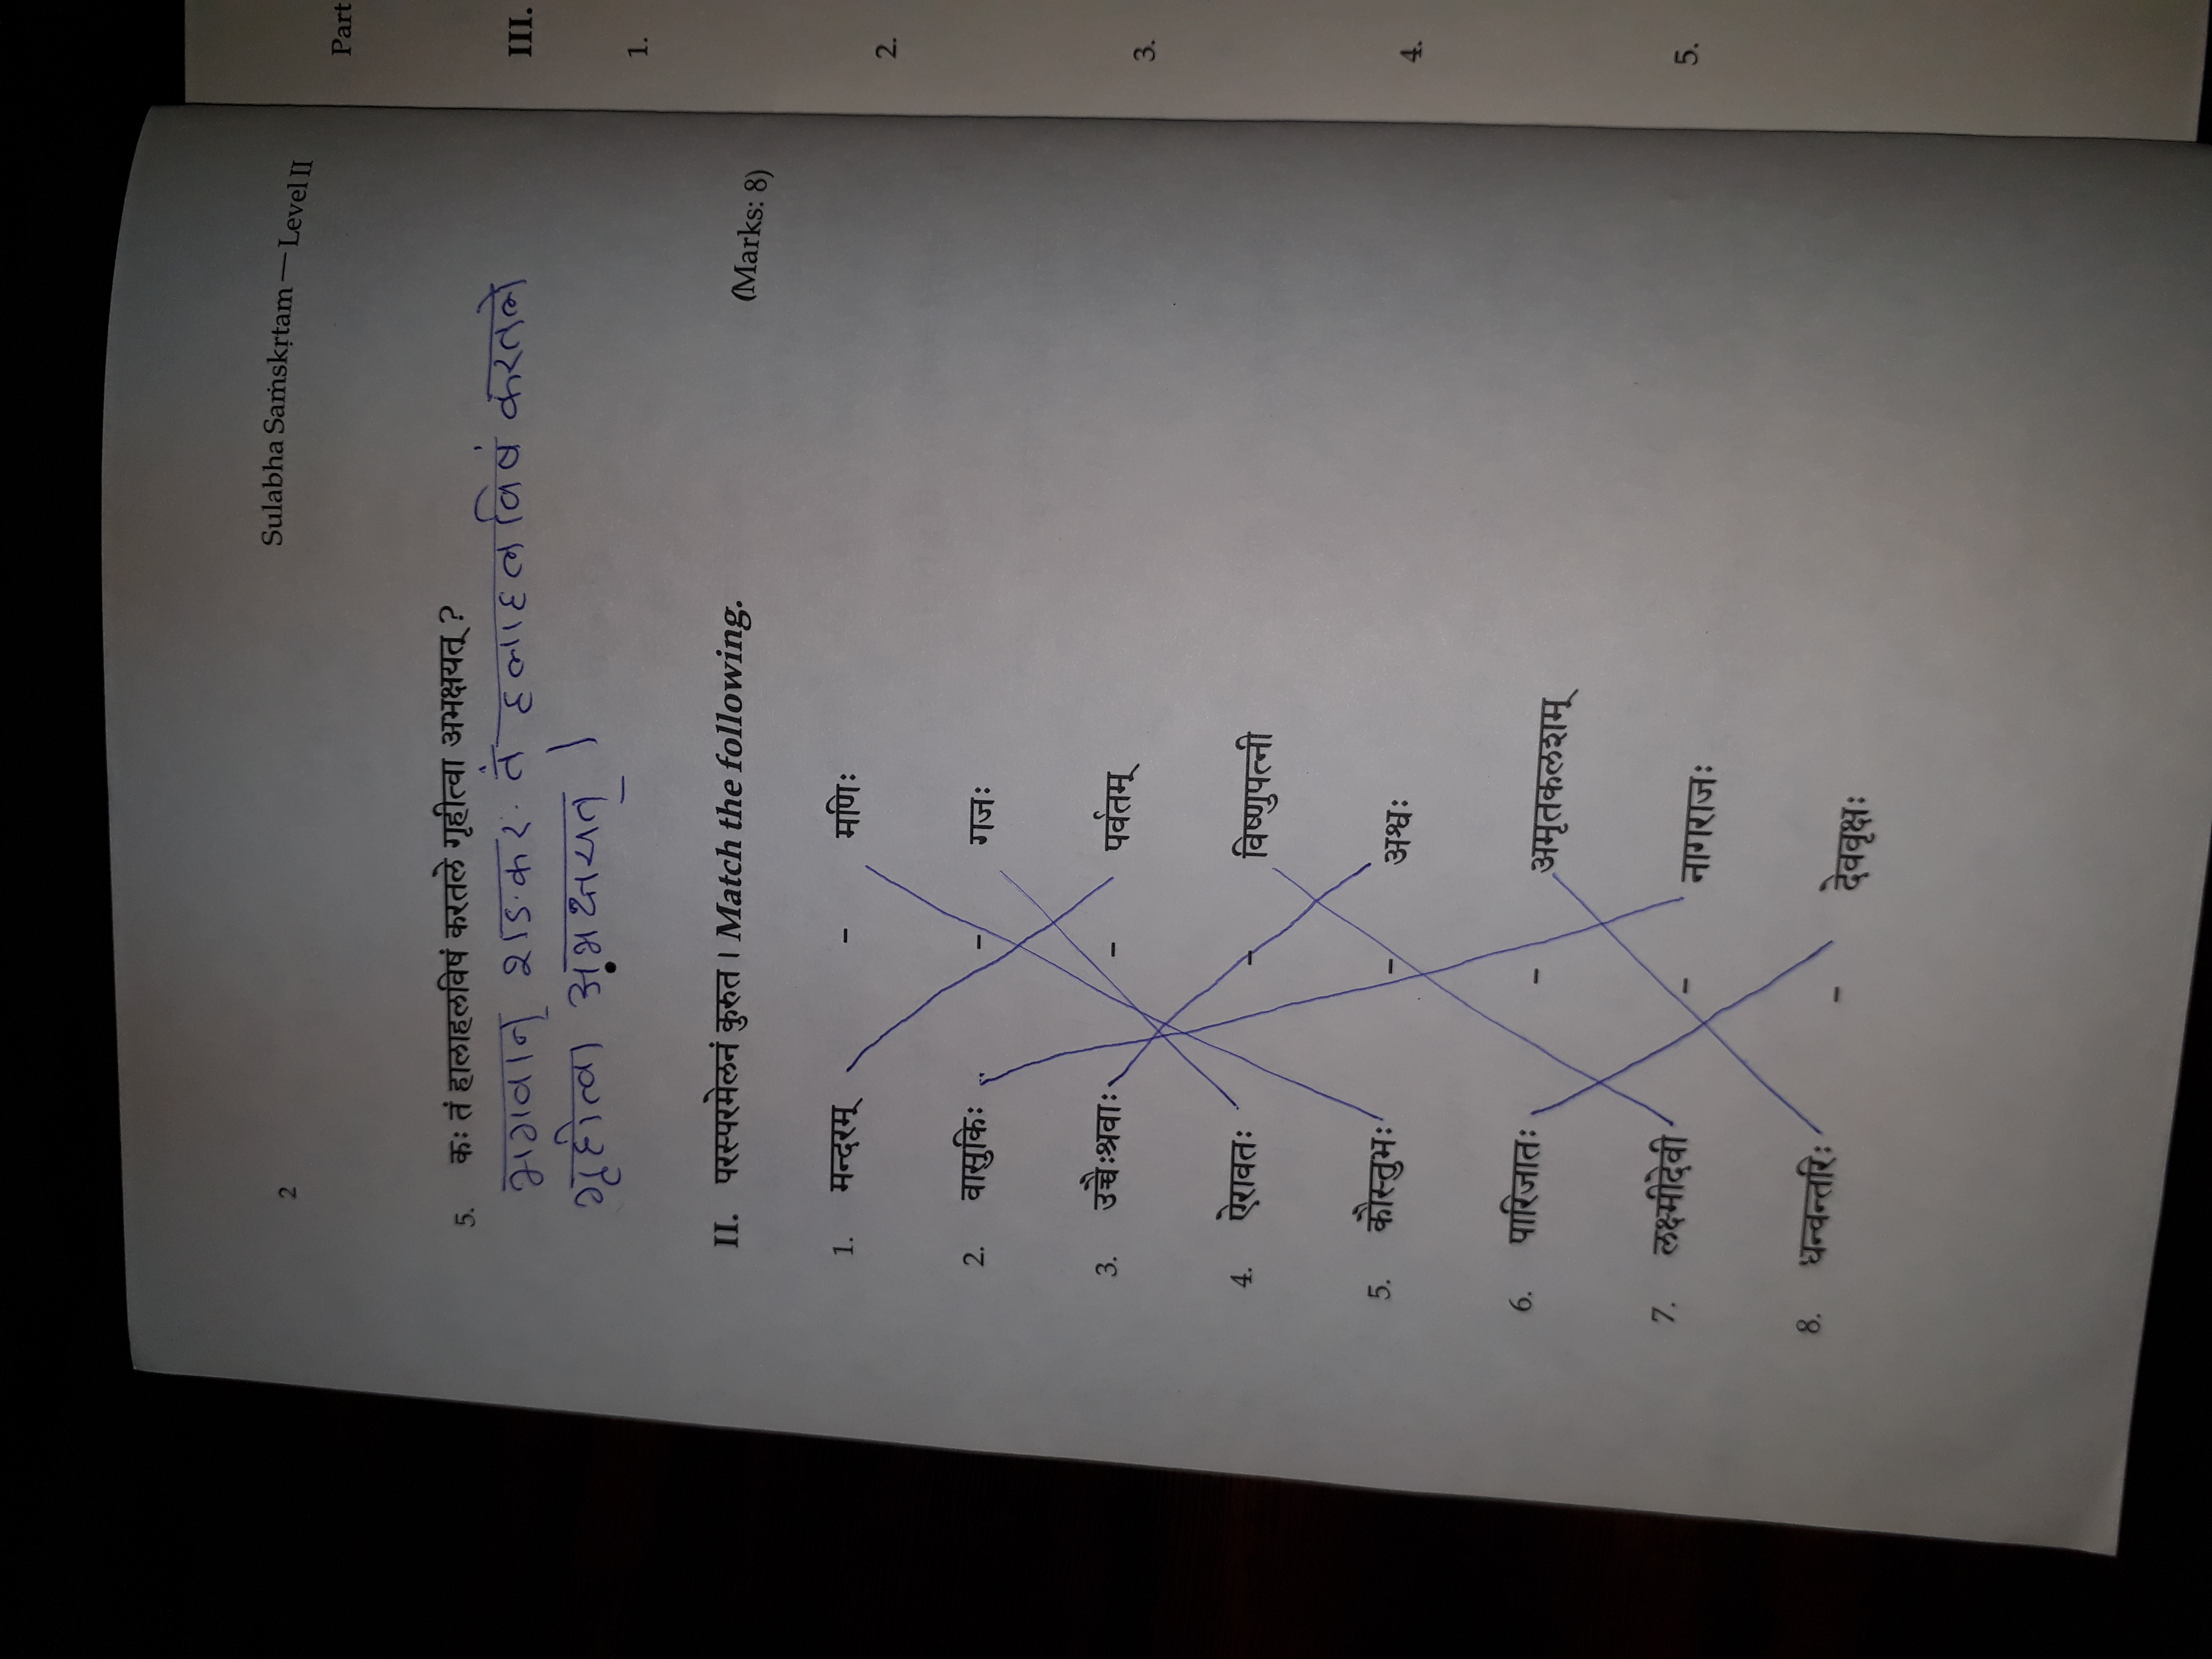 2
Sulabha Saṁskṛtam — Level II
5. कः तं हालाहलविषं करतले गृहीत्वा अभक्षयत् ?
भगवान् शङ्करः तं हलाहल विषं करतले
गृहीत्वा अभक्षयत् ।
II. परस्परमेलनं कुरुत । Match the following. (Marks: 8)
1. मन्दरम् - मणिः
2. वासुकिः - गजः
3. उच्चैःश्रवाः - पर्वतम्
4. ऐरावतः - विष्णुपत्नी
5. कौस्तुभः - अश्वः
6. पारिजातः - अमृतकलशम्
7. लक्ष्मीदेवी - नागराजः
8. धन्वन्तरिः - देववृक्षः
Part
III.
1.
2.
3.
4.
5.